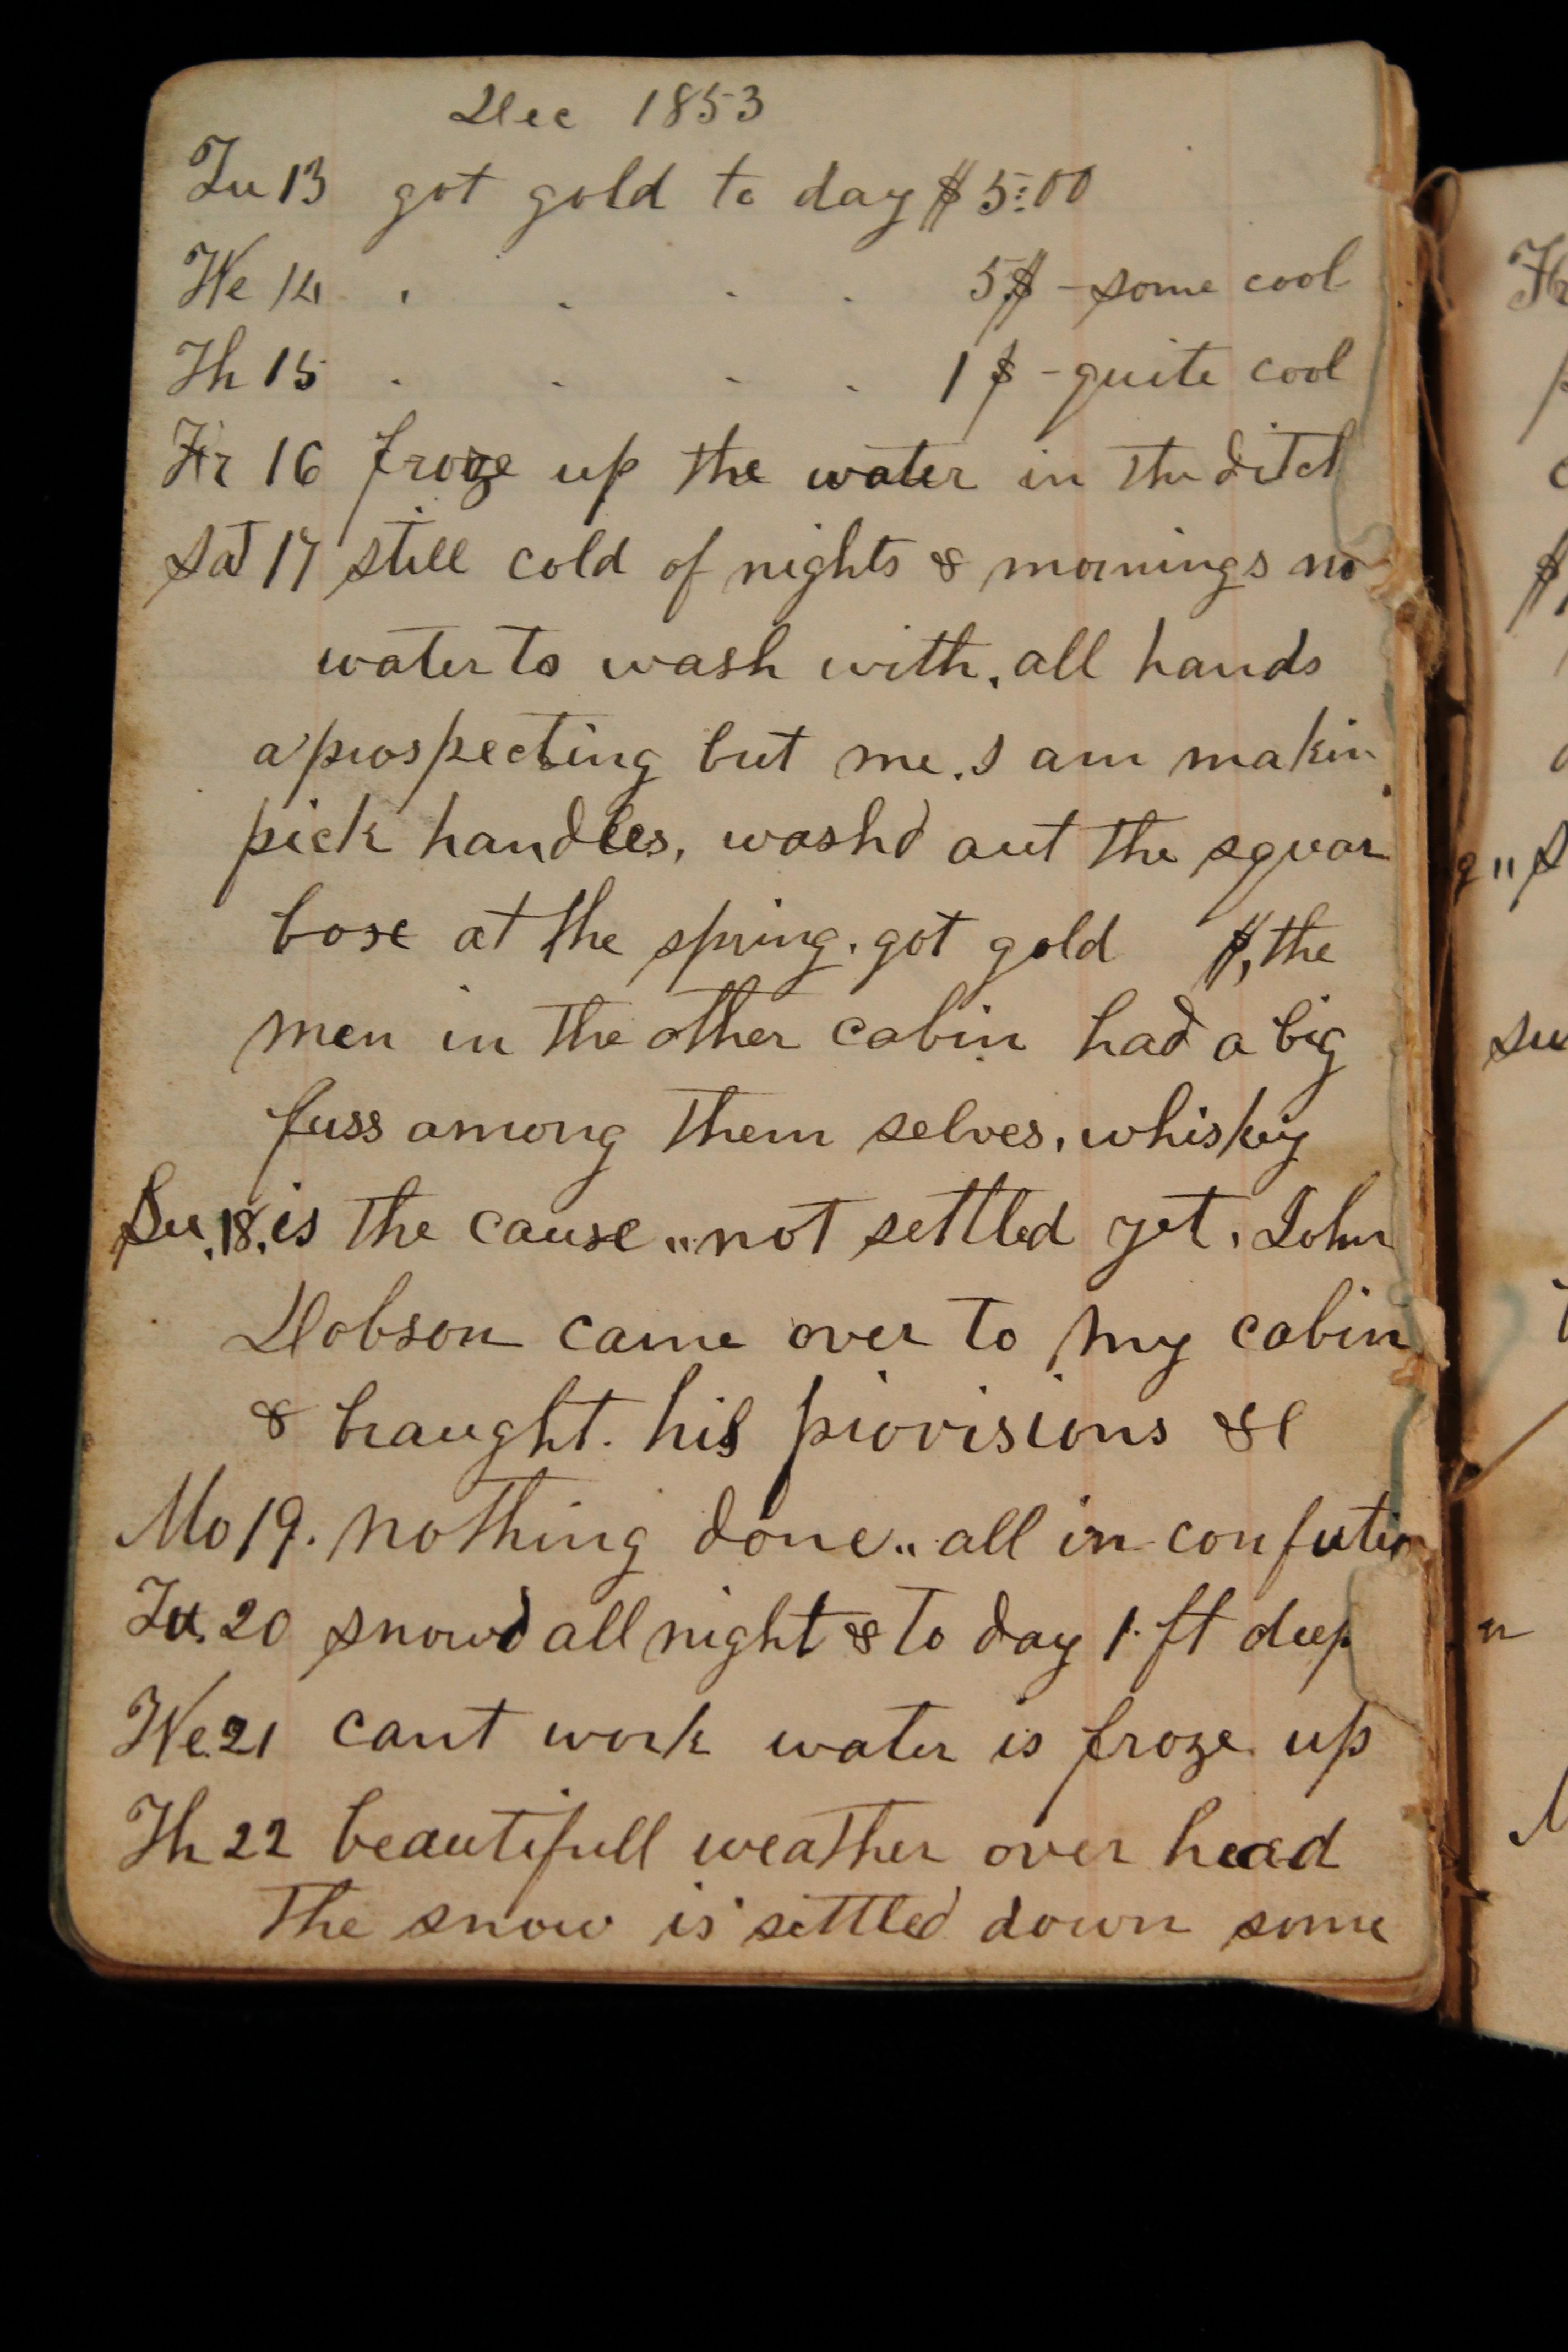 Dec 1853
Tu 13 got gold to day $5:00
We 14 . . . . 5$ - some cool
Th 15 . . . . 1$ - quite cool
Fr 16 froze up the water in the ditch
Sat 17 still cold of nights & mornings no
water to wash with. all hands
a prospecting but me. I am makin
pick handles, washd out the squar
bose at the spring. got gold $, the
men in the other cabin had a big
fuss among them selves. whiskey
Su. 18. is the cause.. not settled yet. John
Dobson came over to my cabin
& braught. his provisions &c
Mo 19. nothing done.. all in confution
Tu. 20 snowd all night & to day 1 ft deep
We. 21 cant work water is froze up
Th 22 beautifull weather over head
the snow is settled down some